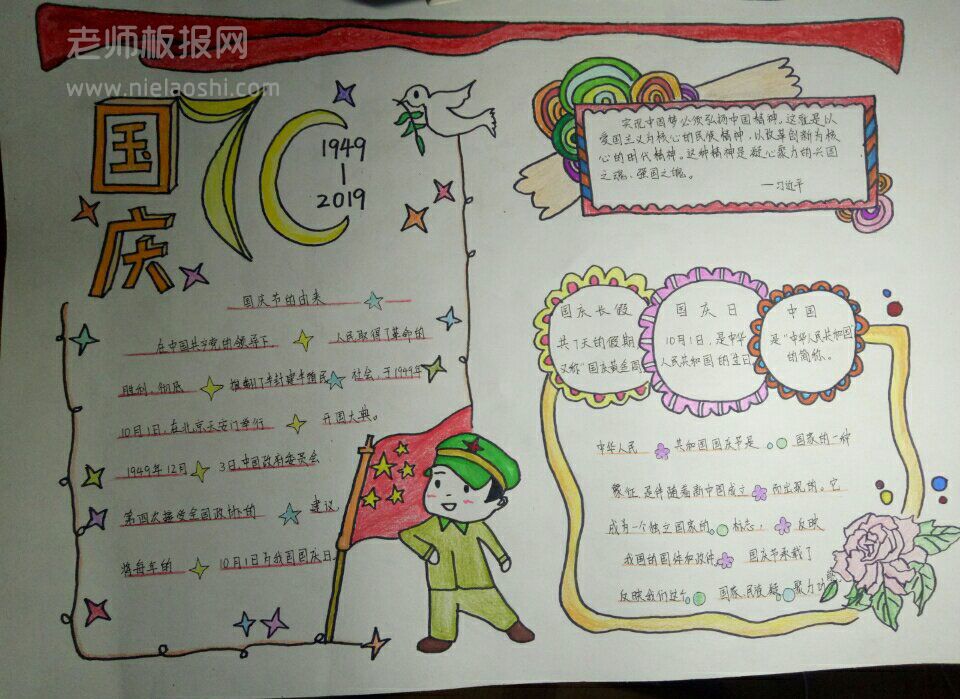 老师板报网
www.nielaoshi.com
国庆
70
1949
2019
国庆节的由来
在中国共产党的领导下 人民取得了革命的
胜利,彻底 推翻了半封建半殖民 社会,于1949年
10月1日,在北京天安门举行 开国大典。
1949年12月 3日,中国政府委员会
第四次接受全国政协的 建议
将每年的 10月1日为我国国庆日。
实现中国梦必须弘扬中国精神。这就是以
爱国主义为核心的民族精神,以改革创新为核
心的时代精神。这种精神是凝心聚力的兴国
之魂、强国之魄。
——习近平
国庆长假
共7天的假期
又称"国庆黄金周
国庆日
10月1日,是中华
人民共和国的生日
中国
是"中华人民共和国"
的简称。
中华人民 共和国国庆节是 国家的一种
象征 是伴随着新中国成立 而出现的。它
成为一个独立国家的 标志, 反映
我国的国体和政体 国庆节承载了
反映我们这个 国家、民族 凝 聚力功能